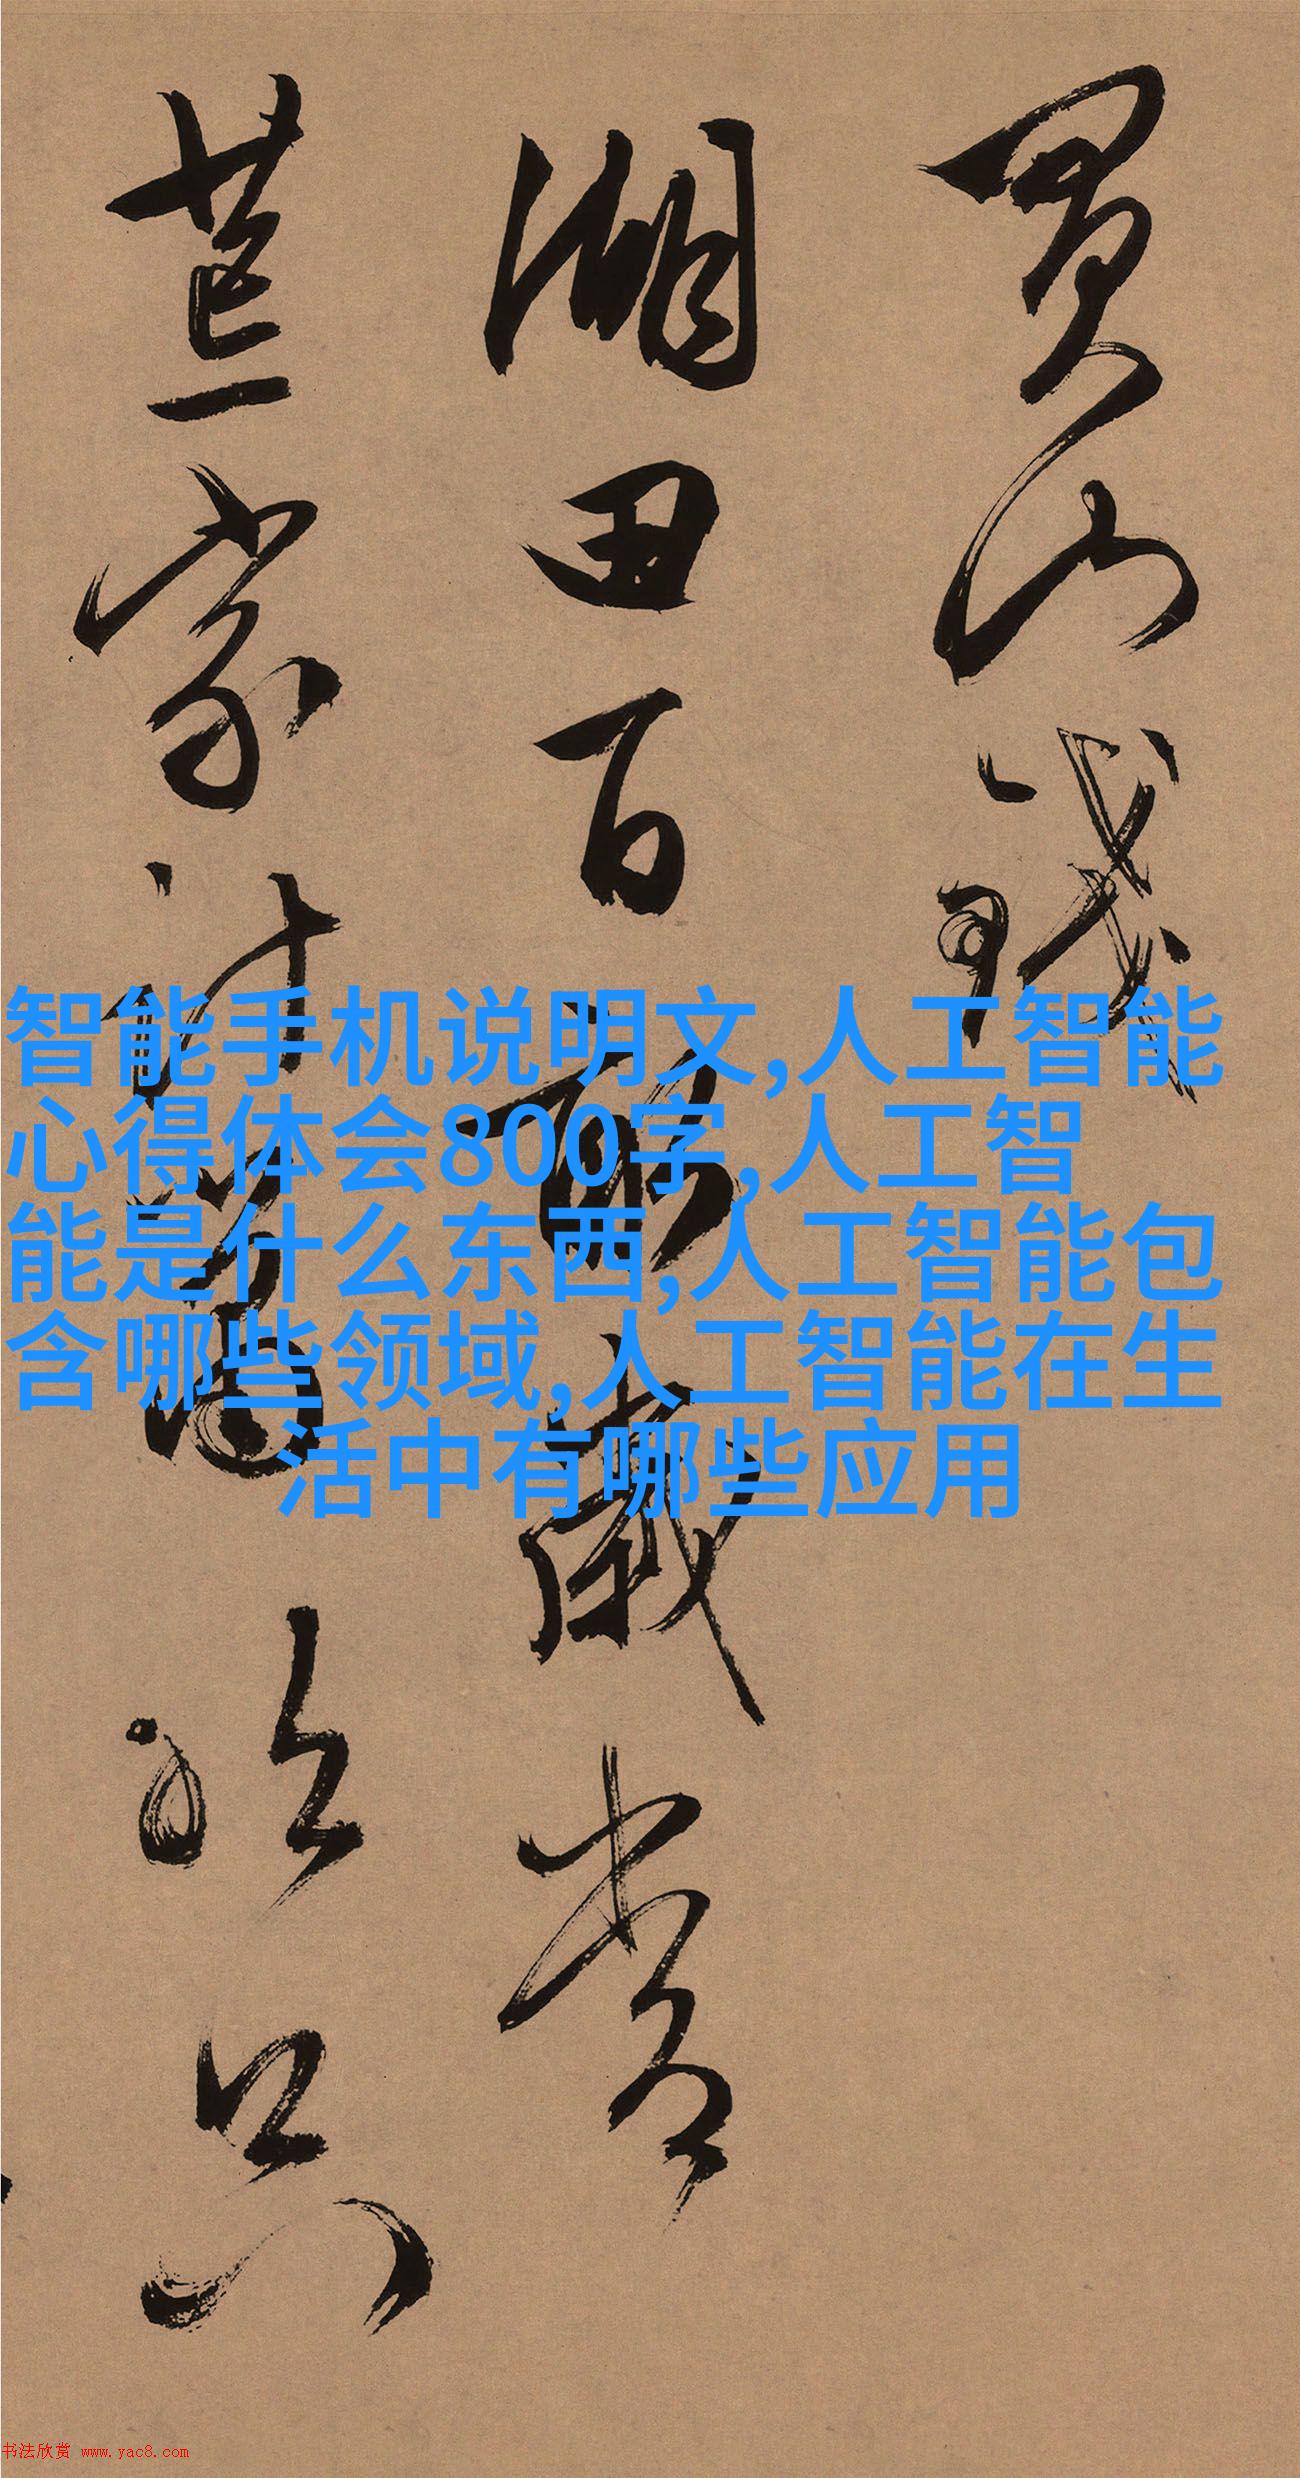 買山錢
湖田百畝歲常
家計
智能手机说明文,人工智能
心得体会800字,人工智
能是什么东西,人工智能包
含哪些领域,人工智能在生
活中有哪些应用
书法欣赏 www.yac8.com